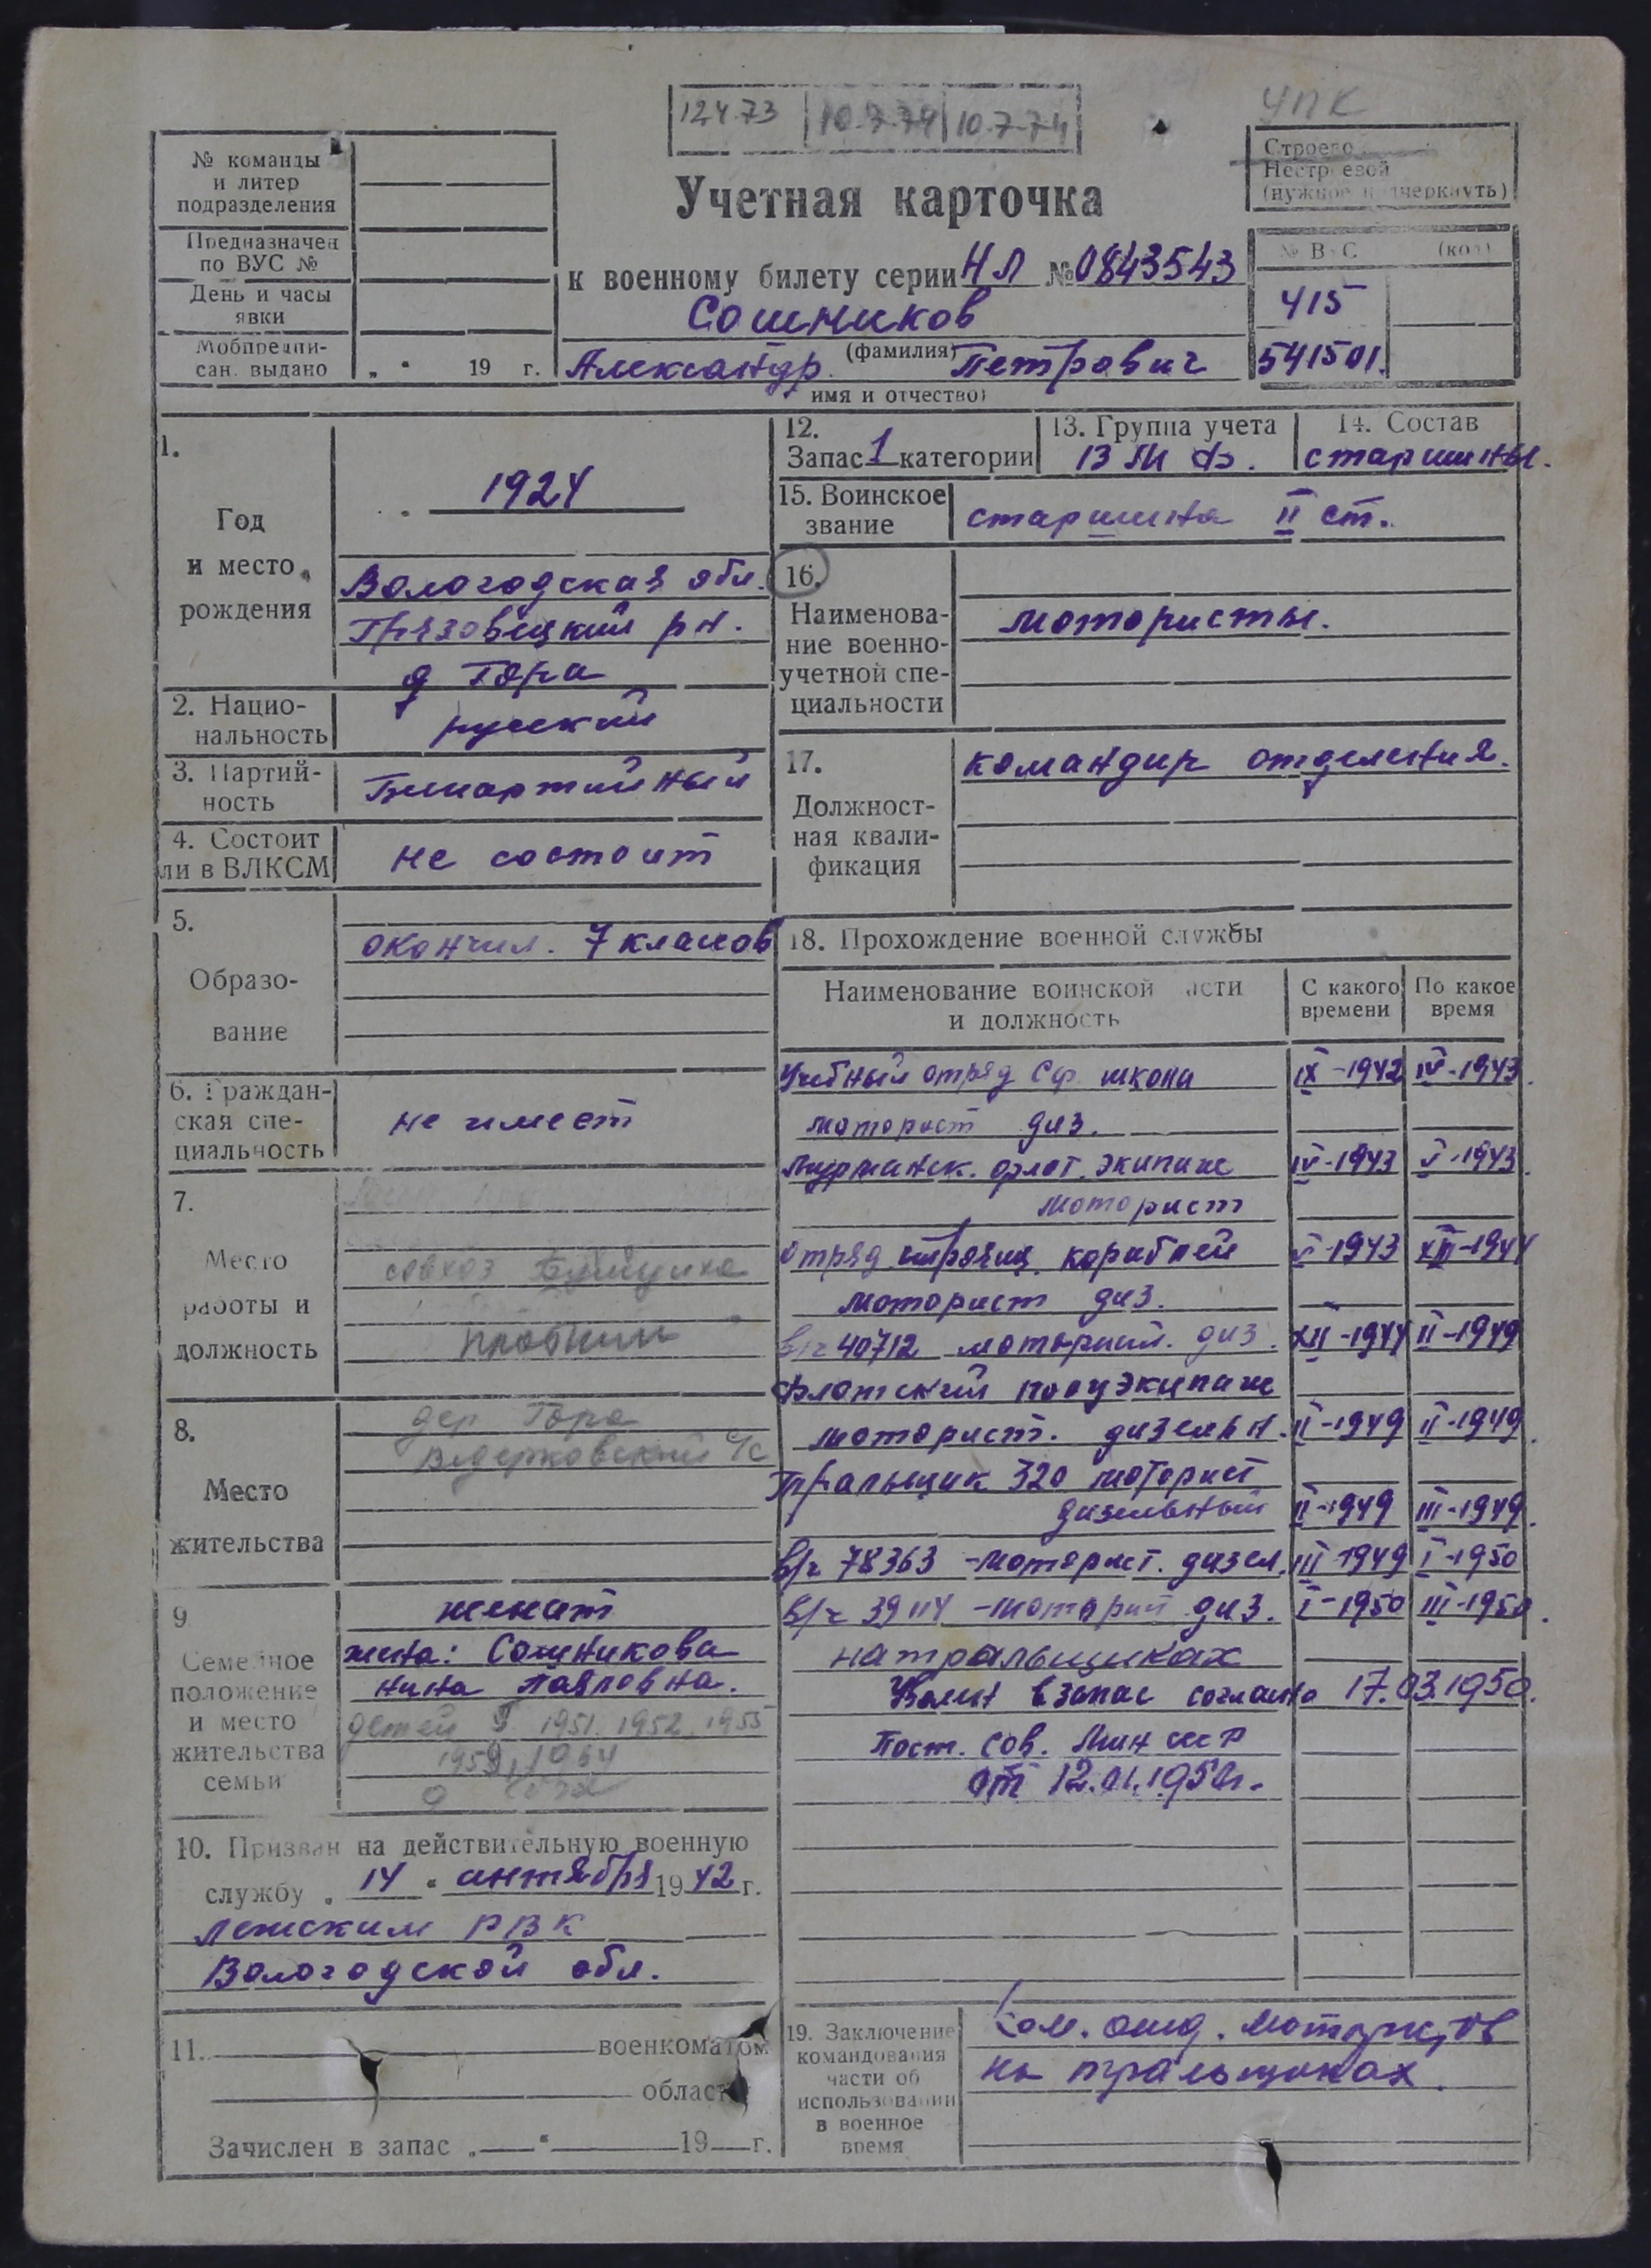 12.4.73 10.7.74 10.7.74
УПК
№ команды
и литер
подразделения
Предназначен
по ВУС №
День и часы
явки
Мобпредпи-
сан. выдано „ “ 19 г.
Учетная карточка
к военному билету серии НЛ № 0843543
Сошников
(фамилия)
Александр Петрович
имя и отчество)
Строево
Нестроевой
(нужное подчеркнуть)
№ ВУС (код)
415
541501.
1.
Год
и место
рождения
1924
Вологодская обл.
Грязовецкий р-н.
д Гора
2. Нацио-
нальность
русский
3. Партий-
ность
Беспартийный
4. Состоит
ли в ВЛКСМ
не состоит
5.
Образо-
вание
окончил. 7 классов
6. Граждан-
ская спе-
циальность
не имеет
7.
Место
работы и
должность
совхоз
8.
Место
жительства
дер Гора
с/с
9
Семейное
положение
и место
жительства
семьи
женат
жена: Сошникова
Нина Павловна.
детей 5 1951. 1952. 1955
1959, 1964
10. Призван на действительную военную
службу „ 14 “ сентября 1942 г.
Лежским РВК
Вологодской обл.
11. военкоматом
области
Зачислен в запас „ “ 19 г.
12.
Запас 1 категории
13. Группа учета
ВМФ.
14. Состав
старшины.
15. Воинское
звание
старшина II ст.
16.
Наименова-
ние военно-
учетной спе-
циальности
мотористы.
17.
Должност-
ная квали-
фикация
командир отделения.
18. Прохождение военной службы
Наименование воинской части
и должность
С какого
времени
По какое
время
Учебный отряд Сф. школа IX-1942 IV-1943
моторист диз.
Мурманск. флот. экипаж IV-1943 V-1943
моторист
отряд кораблей V-1943 XII-1944
моторист диз.
в/ч 40712 моторист. диз. XII-1944 II-1949
Флотский полуэкипаж
моторист. дизельн. II-1949 II-1949
Тральщик 320 моторист
дизельный II-1949 III-1949
в/ч 78363 - моторист. дизел. III-1949 I-1950
в/ч 39114 - моторист диз. I-1950 III-1950
на тральщиках
Уволен в запас согласно 17.03.1950.
Пост. Сов. Мин СССР
от 12.01.1950г.
19. Заключение
командования
части об
использовании
в военное
время
Ком. отд. мотористов
на тральщиках.